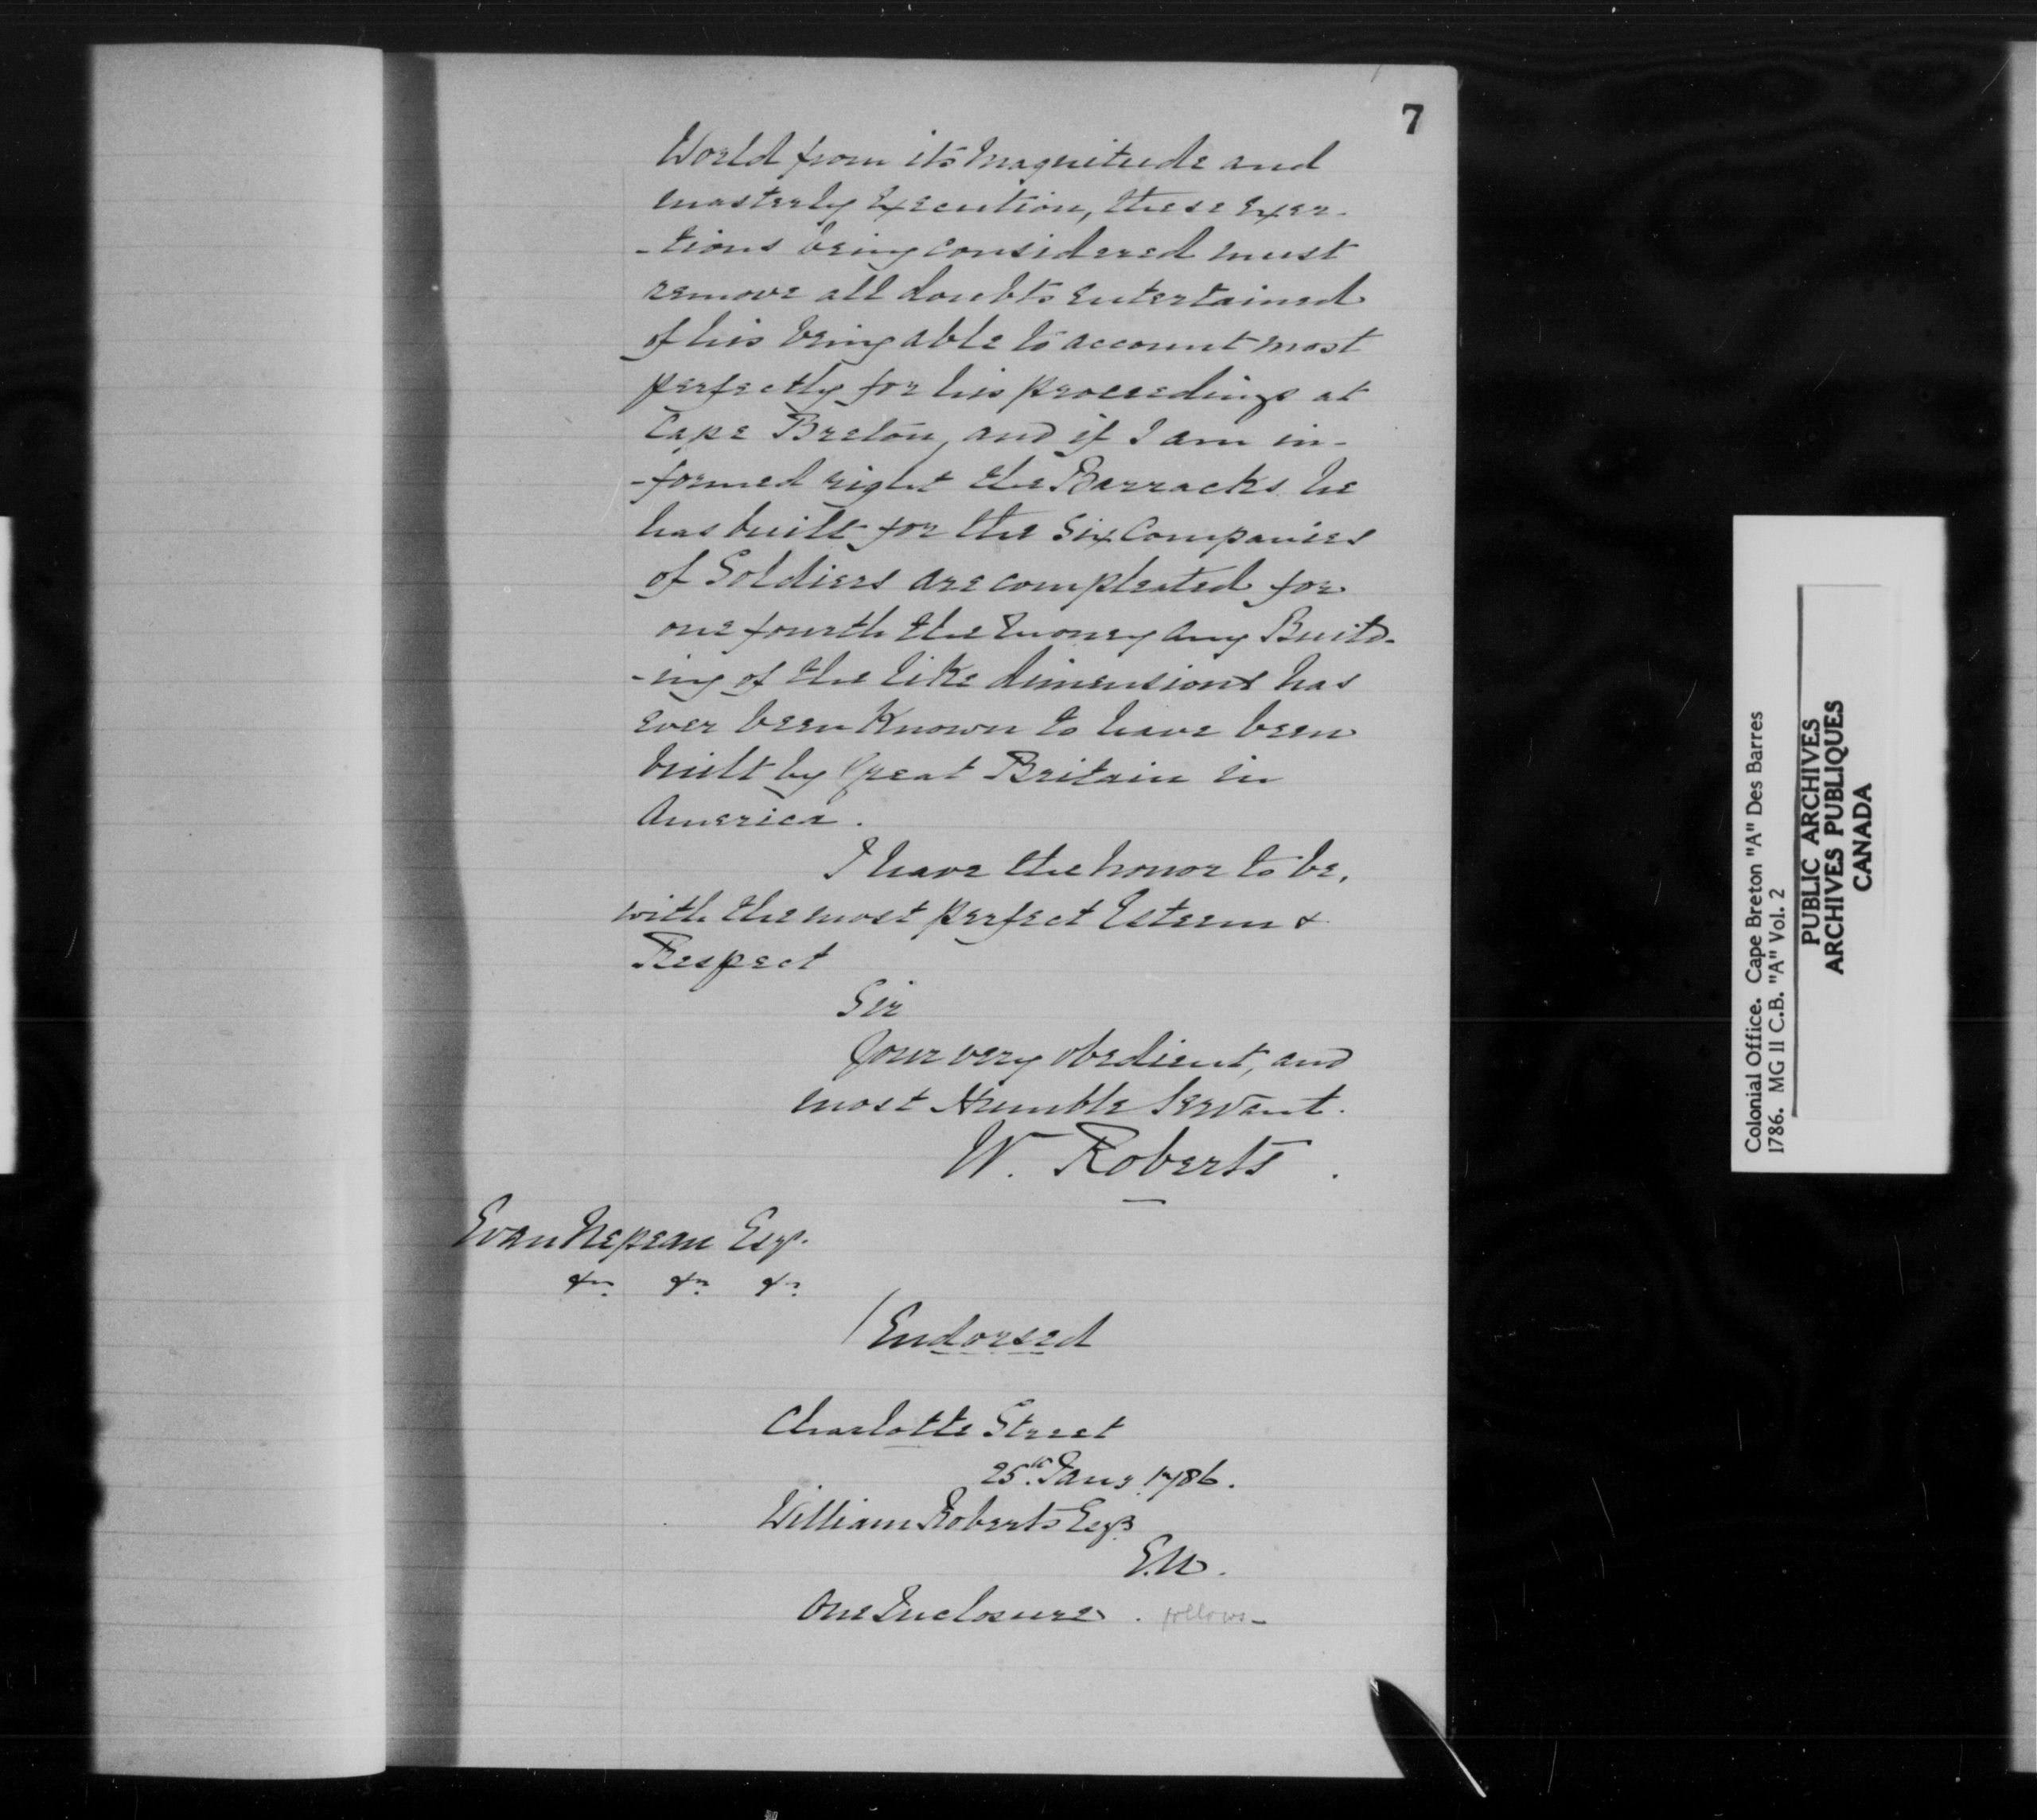 7
World from its Magnitude and
masterly Execution, these exer-
-tions being considered must
remove all doubts entertained
of his being able to account most
perfectly for his proceedings at
Cape Breton, and if I am in-
-formed right the Barracks he
has built for the Six Companies
of Soldiers are compleated for
one fourth the money any Build-
-ing of the like dimensions has
ever been Known to have been
built by Great Britain in
America.
I have the honor to be,
with the most perfect Esteem &
Respect
Sir
Your very obedient, and
most Humble Servant.
W. Roberts.
Evan Nepean Esqr.
&c. &c. &c.
/Endorsed
Charlotte Street
25th Jany 1786.
William Roberts Esqr.
E.N.
One Inclosure. follows-
Colonial Office. Cape Breton "A" Des Barres
1786. MG II C.B. "A" Vol. 2
PUBLIC ARCHIVES
ARCHIVES PUBLIQUES
CANADA